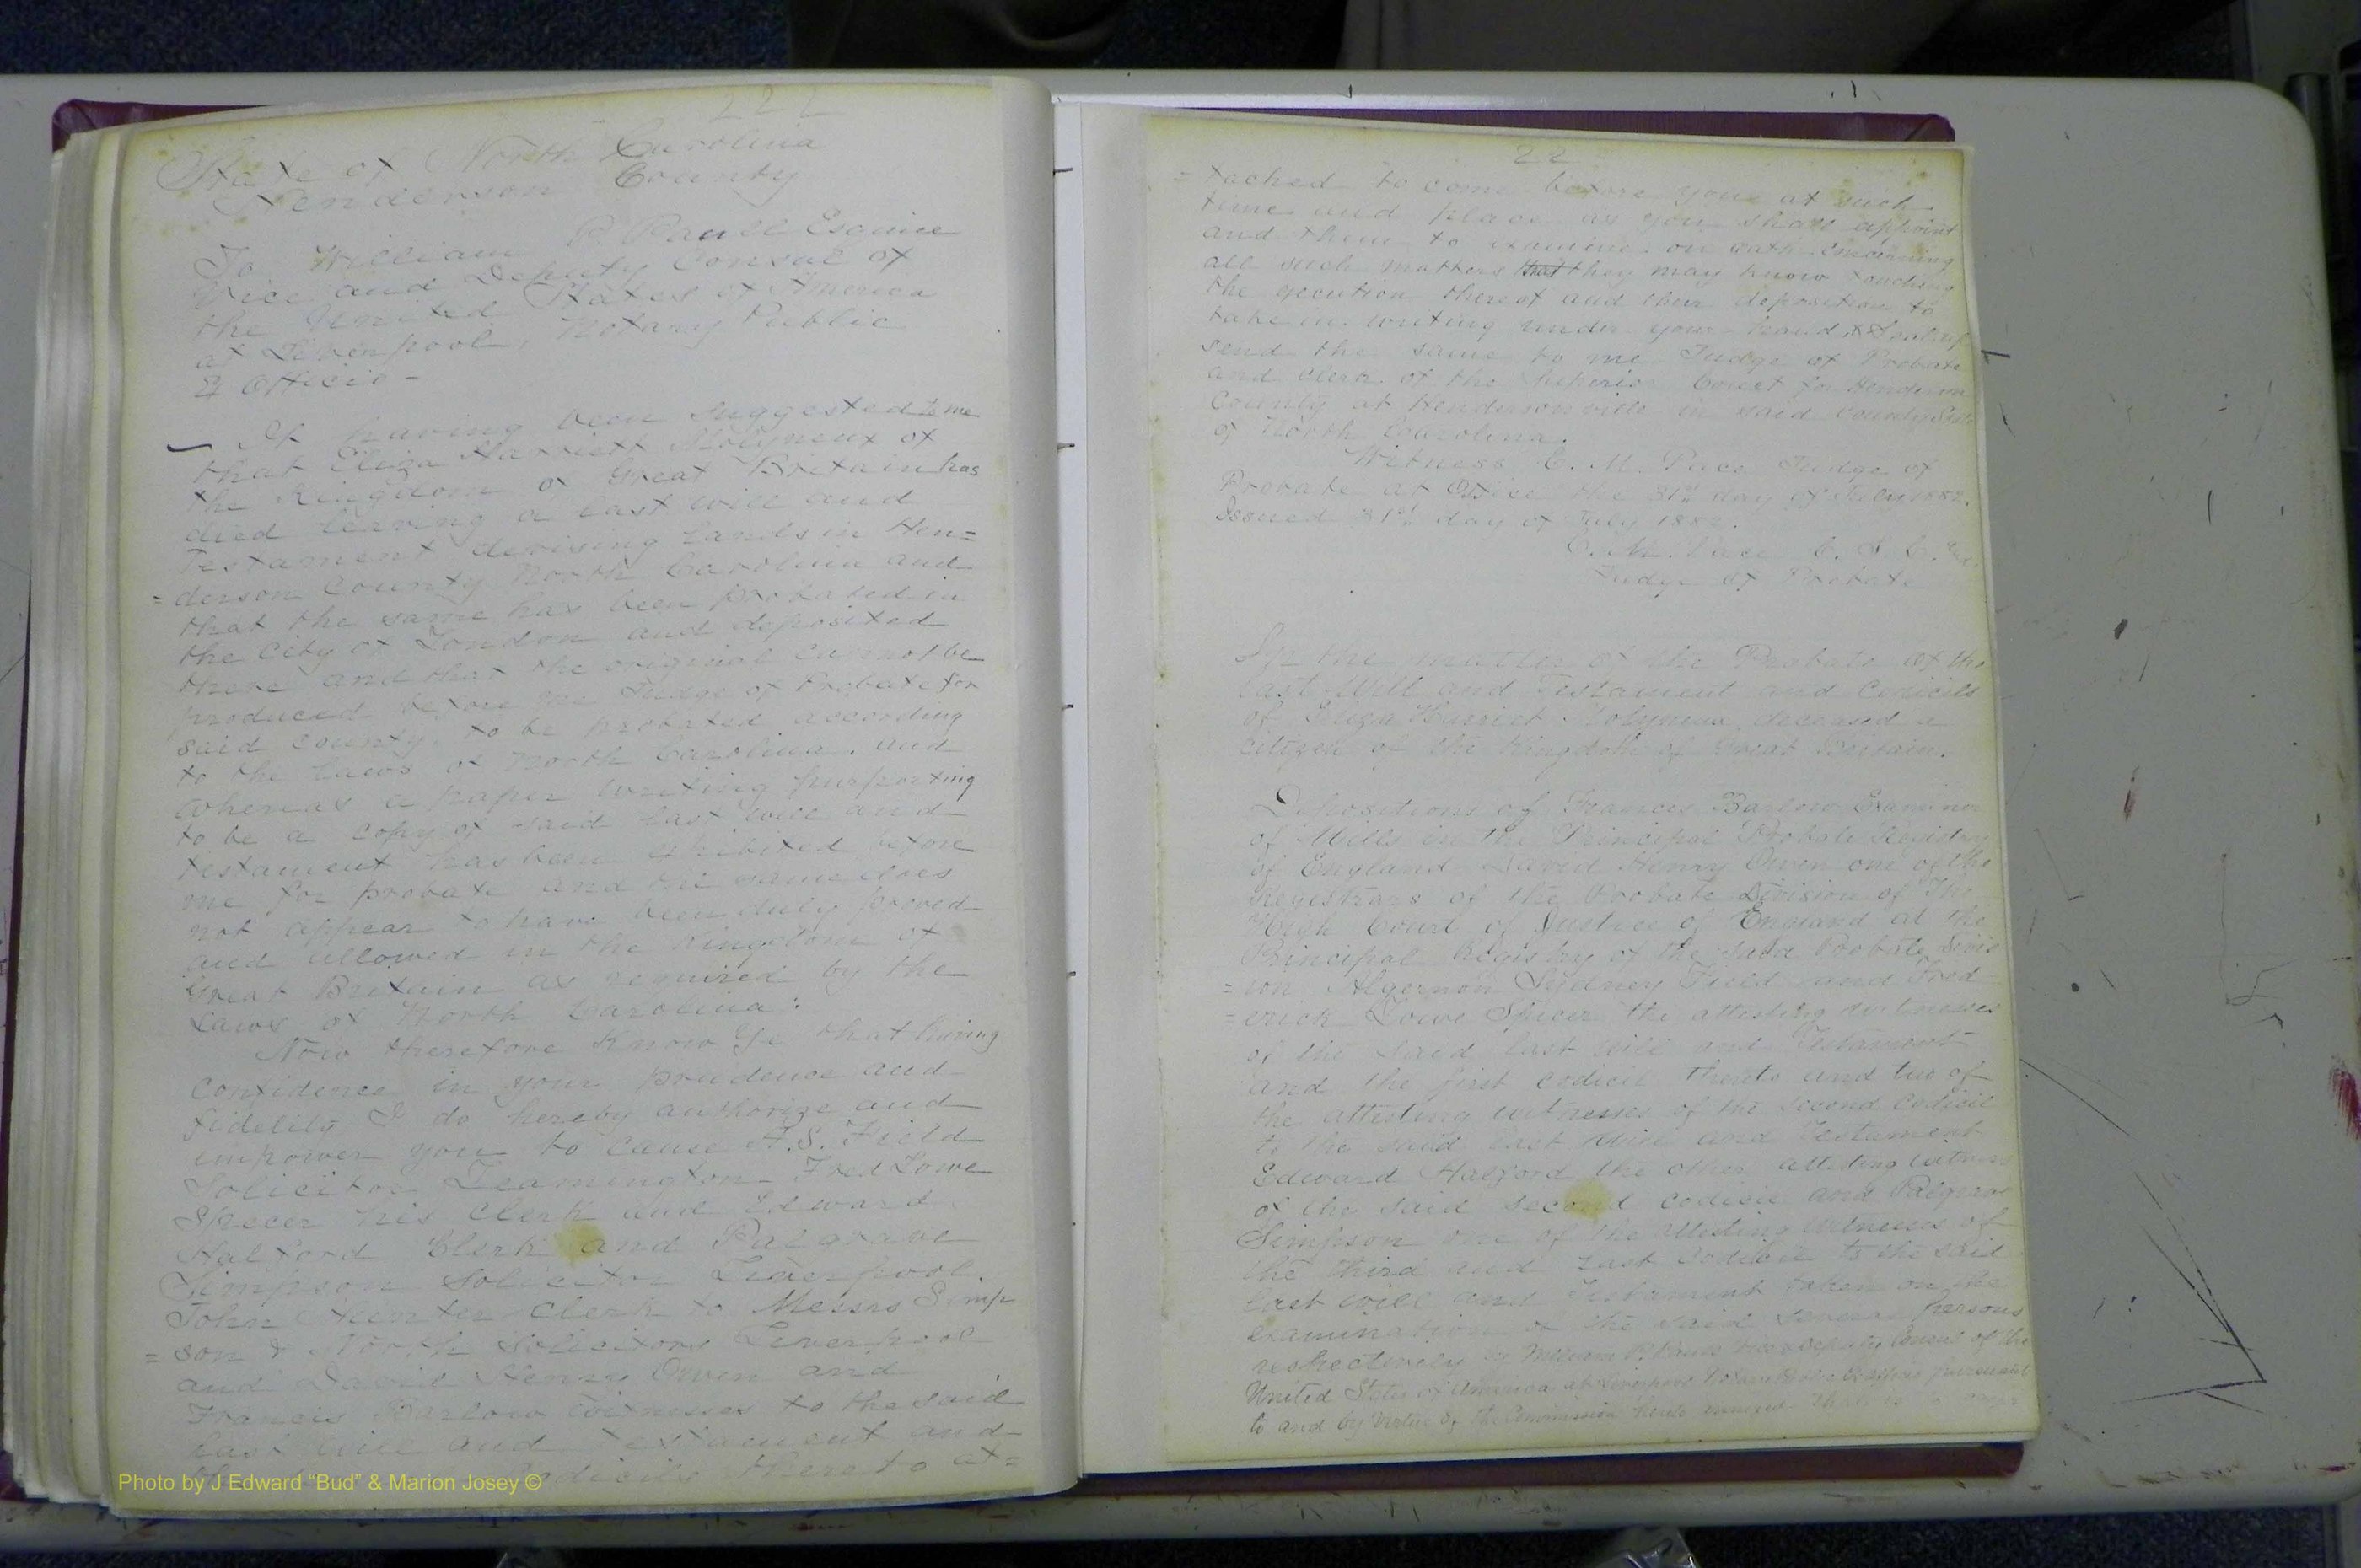 222
State of North Carolina
Henderson County
To William P Paull Esquire
Vice and Deputy Consul of
the United States of America
at Liverpool, Notary Public
Ex Officio -
It having been suggested to me
that Eliza Harriett Molyneux of
the Kingdom of Great Britain has
died leaving a last will and
Testament devising lands in Hen=
=derson County North Carolina and
that the same has been probated in
the City of London and deposited
there and that the original cannot be
produced before me Judge of Probate for
said county. to be probated according
to the laws of North Carolina. and
whereas a paper writing purporting
to be a copy of said last will and
testament has been exhibited before
me for probate and the same does
not appear to have been duly proved
and allowed in the Kingdom of
Great Britain as required by the
Laws of North Carolina:
Now therefore Know Ye that having
confidence in your prudence and
fidelity I do hereby authorize and
empower you to cause A.S. Field
Solicitor Leamington Fred Lowe
Specer his Clerk and Edward
Halford Clerk and Palgrave
Simpson Solicitor Liverpool.
John Hunter clerk to Messrs Simp
=son & North Solicitors Liverpool
and David Henry Owen and
Francis Barlow Witnesses to the said
last will and testament and
codicils thereto at=
22
=tached to come before you at such
time and place as you shall appoint
and them to examine on oath concerning
all such matters that they may know touching
the execution thereof and their deposition to
take in writing under your hand & Seal
send the same to me Judge of Probate
and Clerk of the Superior Court for Henderson
County at Hendersonville in said county State
of North Carolina.
Witness C. M. Pace Judge of
Probate at Office the 31st day of July 1882.
Issued 31st day of July 1882.
C. M. Pace C. S. C.
Judge of Probate
In the matter of the Probate of the
last Will and Testament and Codicils
of Eliza Harriet Molyneux deceased a
citizen of the Kingdom of Great Britain.
Depositions of Frances Barlow Examiner
of Wills in the Principal Probate Registry
of England David Henry Owen one of the
Registrars of the Probate Division of The
High Court of Justice of England at the
Principal Registry of the said Probate Divis
=ion Algernon Sydney Field and Fred
=erick Lowe Spicer the attesting witnesses
of the said last will and Testament
and the first codicil thereto and two of
the attesting witnesses of the second Codicil
to the said last Will and Testament
Edward Halford the other attesting witness
of the said second codicil and Palgrave
Simpson one of the attesting witnesses of
the third and last Codicil to the said
last will and Testament taken on the
examination of the said several persons
respectively by William P. Paull Vice & Deputy Consul of the
United States of America at Liverpool Notary Public Ex officio pursuant
to and by virtue of the Commission hereto annexed
Photo by J Edward “Bud” & Marion Josey ©